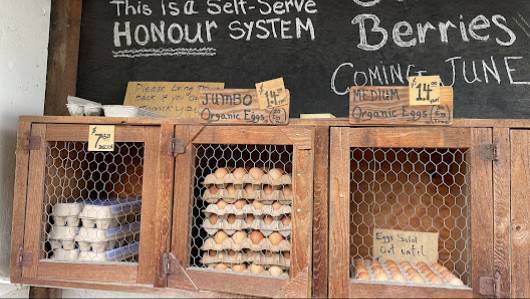 This is a Self-Serve
HONOUR SYSTEM
Berries
COMING JUNE
Please bring
back if you
JUMBO
Organic Eggs
$14
MEDIUM
Organic Eggs
$14
$7
Eggs Sold
Out until